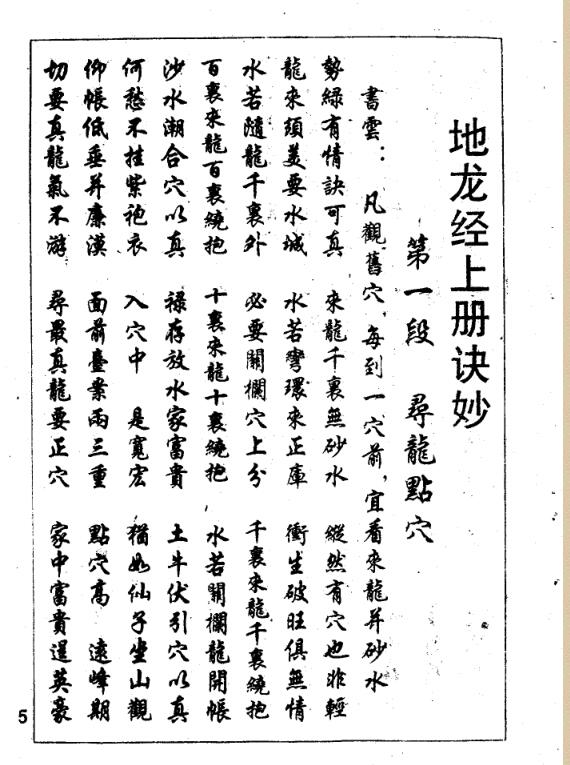 地龙经上册诀妙
第一段 尋龍點穴
書雲：凡觀舊穴，每到一穴前，宜看來龍并砂水
勢綠有情訣可真 來龍千裏無砂水 縱然有穴也非輕
龍來須美要水城 水若彎環來正庫 衝生破旺俱無情
水若隨龍千裏外 必要關欄穴上分 千裏來龍千裏繞抱
百裏來龍百裏繞抱 十裏來龍十裏繞抱 水若關欄龍開帳
沙水潮合穴以真 禄存放水家富貴 土牛伏引穴以真
何愁不挂紫袍衣 入穴中 是寬宏 猶如仙子坐山觀
仰帳低垂并廉漠 面前臺案兩三重 點穴高 遠峰期
切要真龍氣不游 尋最真龍要正穴 家中富貴逞英豪
5